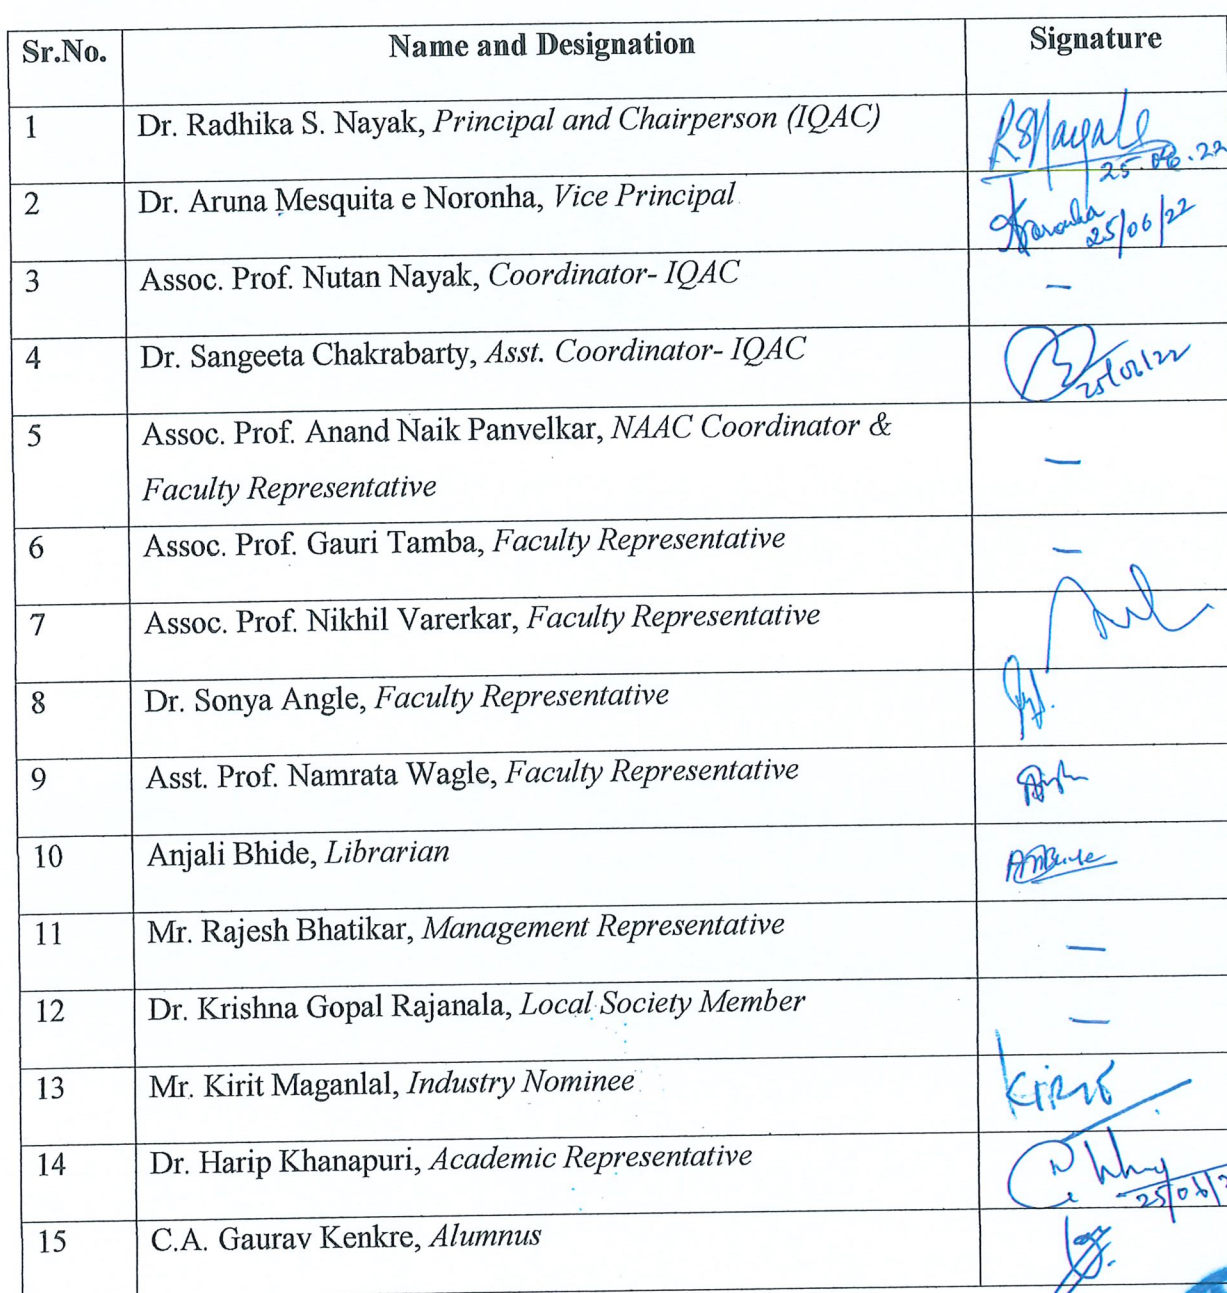 Sr.No. Name and Designation Signature
1 Dr. Radhika S. Nayak, Principal and Chairperson (IQAC) RSNayak
25.06.22
2 Dr. Aruna Mesquita e Noronha, Vice Principal Noronha
25/06/22
3 Assoc. Prof. Nutan Nayak, Coordinator- IQAC –
4 Dr. Sangeeta Chakrabarty, Asst. Coordinator- IQAC 25/06/22
5 Assoc. Prof. Anand Naik Panvelkar, NAAC Coordinator & –
Faculty Representative
6 Assoc. Prof. Gauri Tamba, Faculty Representative –
7 Assoc. Prof. Nikhil Varerkar, Faculty Representative
8 Dr. Sonya Angle, Faculty Representative
9 Asst. Prof. Namrata Wagle, Faculty Representative
10 Anjali Bhide, Librarian
11 Mr. Rajesh Bhatikar, Management Representative –
12 Dr. Krishna Gopal Rajanala, Local Society Member –
13 Mr. Kirit Maganlal, Industry Nominee Kirit
14 Dr. Harip Khanapuri, Academic Representative
25/06/2
15 C.A. Gaurav Kenkre, Alumnus